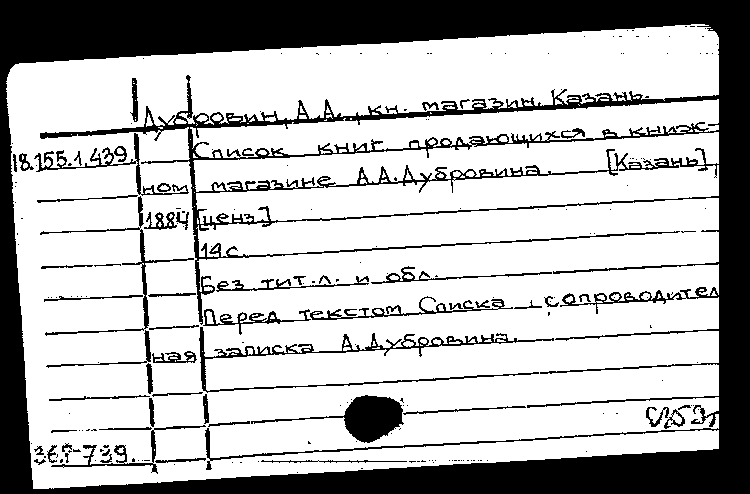 Дубровин, А.А., кн. магазин. Казань.
18.155.1.439. Список книг продающихся в книж-
ном магазине А.А.Дубровина. [Казань],
1884 [ценз.]
14с.
Без тит.л. и обл.
Перед текстом Списка сопроводител
ная записка А.Дубровина.